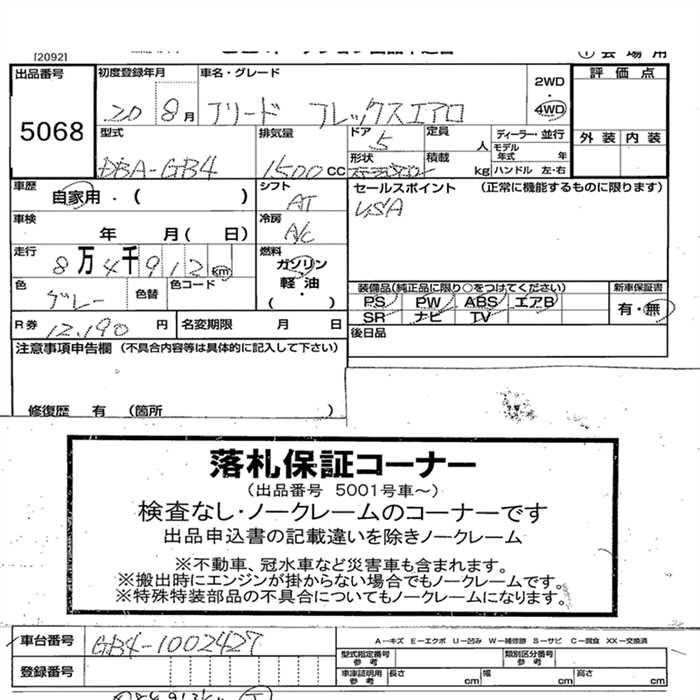 [2092]
① 会場用
出品番号 初度登録年月 車名・グレード 2WD・4WD 評価点
5068 20 8月 フリード フレックスエアロ
外装 内装
型式 排気量 ドア 定員 ディーラー・並行
DBA-GB4 1500cc 5 人 モデル年式 年
形状 積載 kg ハンドル 左・右
車歴 シフト セールスポイント (正常に機能するものに限ります)
自家用・( ) AT USA
車検 冷房
年 月( 日) A/C
走行 燃料
8万4千912km ガソリン・軽油・( )
色 色替 色コード
グレー
装備品(純正品に限り○をつけてください) 新車保証書
PS PW ABS エアB 有・無
SR ナビ TV
R券 12,190円 名変期限 月 日 後日品
注意事項申告欄 (不具合内容等は具体的に記入して下さい)
修復歴 有 (箇所 )
落札保証コーナー
(出品番号 5001号車～)
検査なし・ノークレームのコーナーです
出品申込書の記載違いを除きノークレーム
※不動車、冠水車など災害車も含まれます。
※搬出時にエンジンが掛からない場合でもノークレームです。
※特殊特装部品の不具合についてもノークレームになります。
車台番号 GB4-1002427 A-キズ E-エクボ U-凹み W-補修跡 S-サビ C-腐食 XX-交換済
型式指定番号 参考 類別区分番号 参考
登録番号 車庫証明用 参考 長さ cm 幅 cm 高さ cm